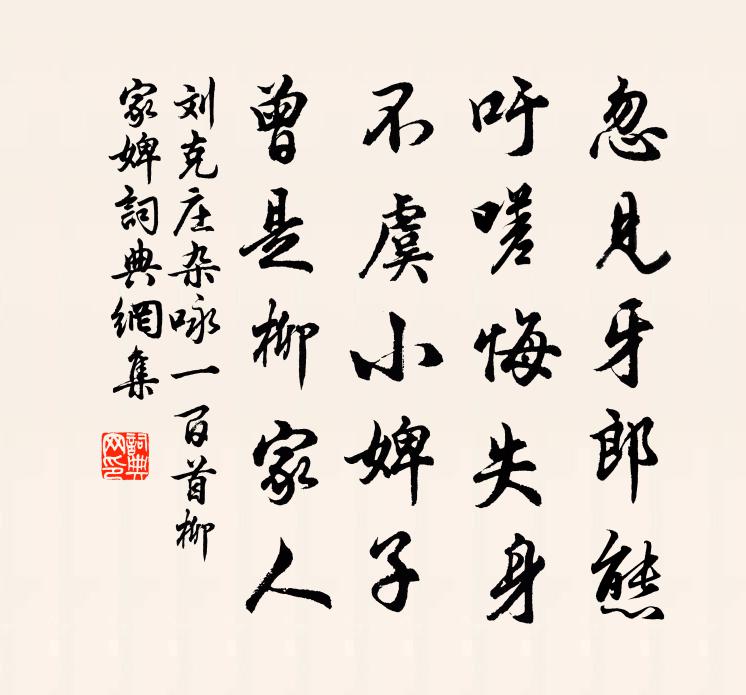 忽見牙郎態
吁嗟悔失身
不虞小婢子
曾是柳家人
刘克庄杂咏一百首柳
家婢詞典網集
詞典
网印